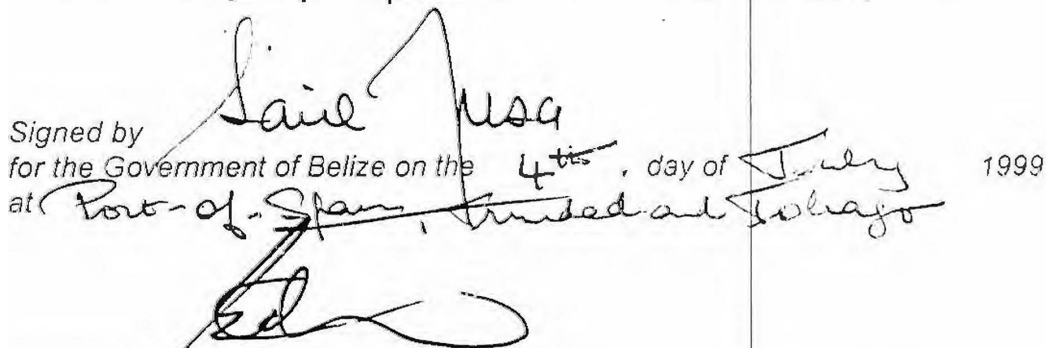 Said Musa
Signed by
for the Government of Belize on the 4th, day of July 1999
at Port-of-Spain, Trinidad and Tobago